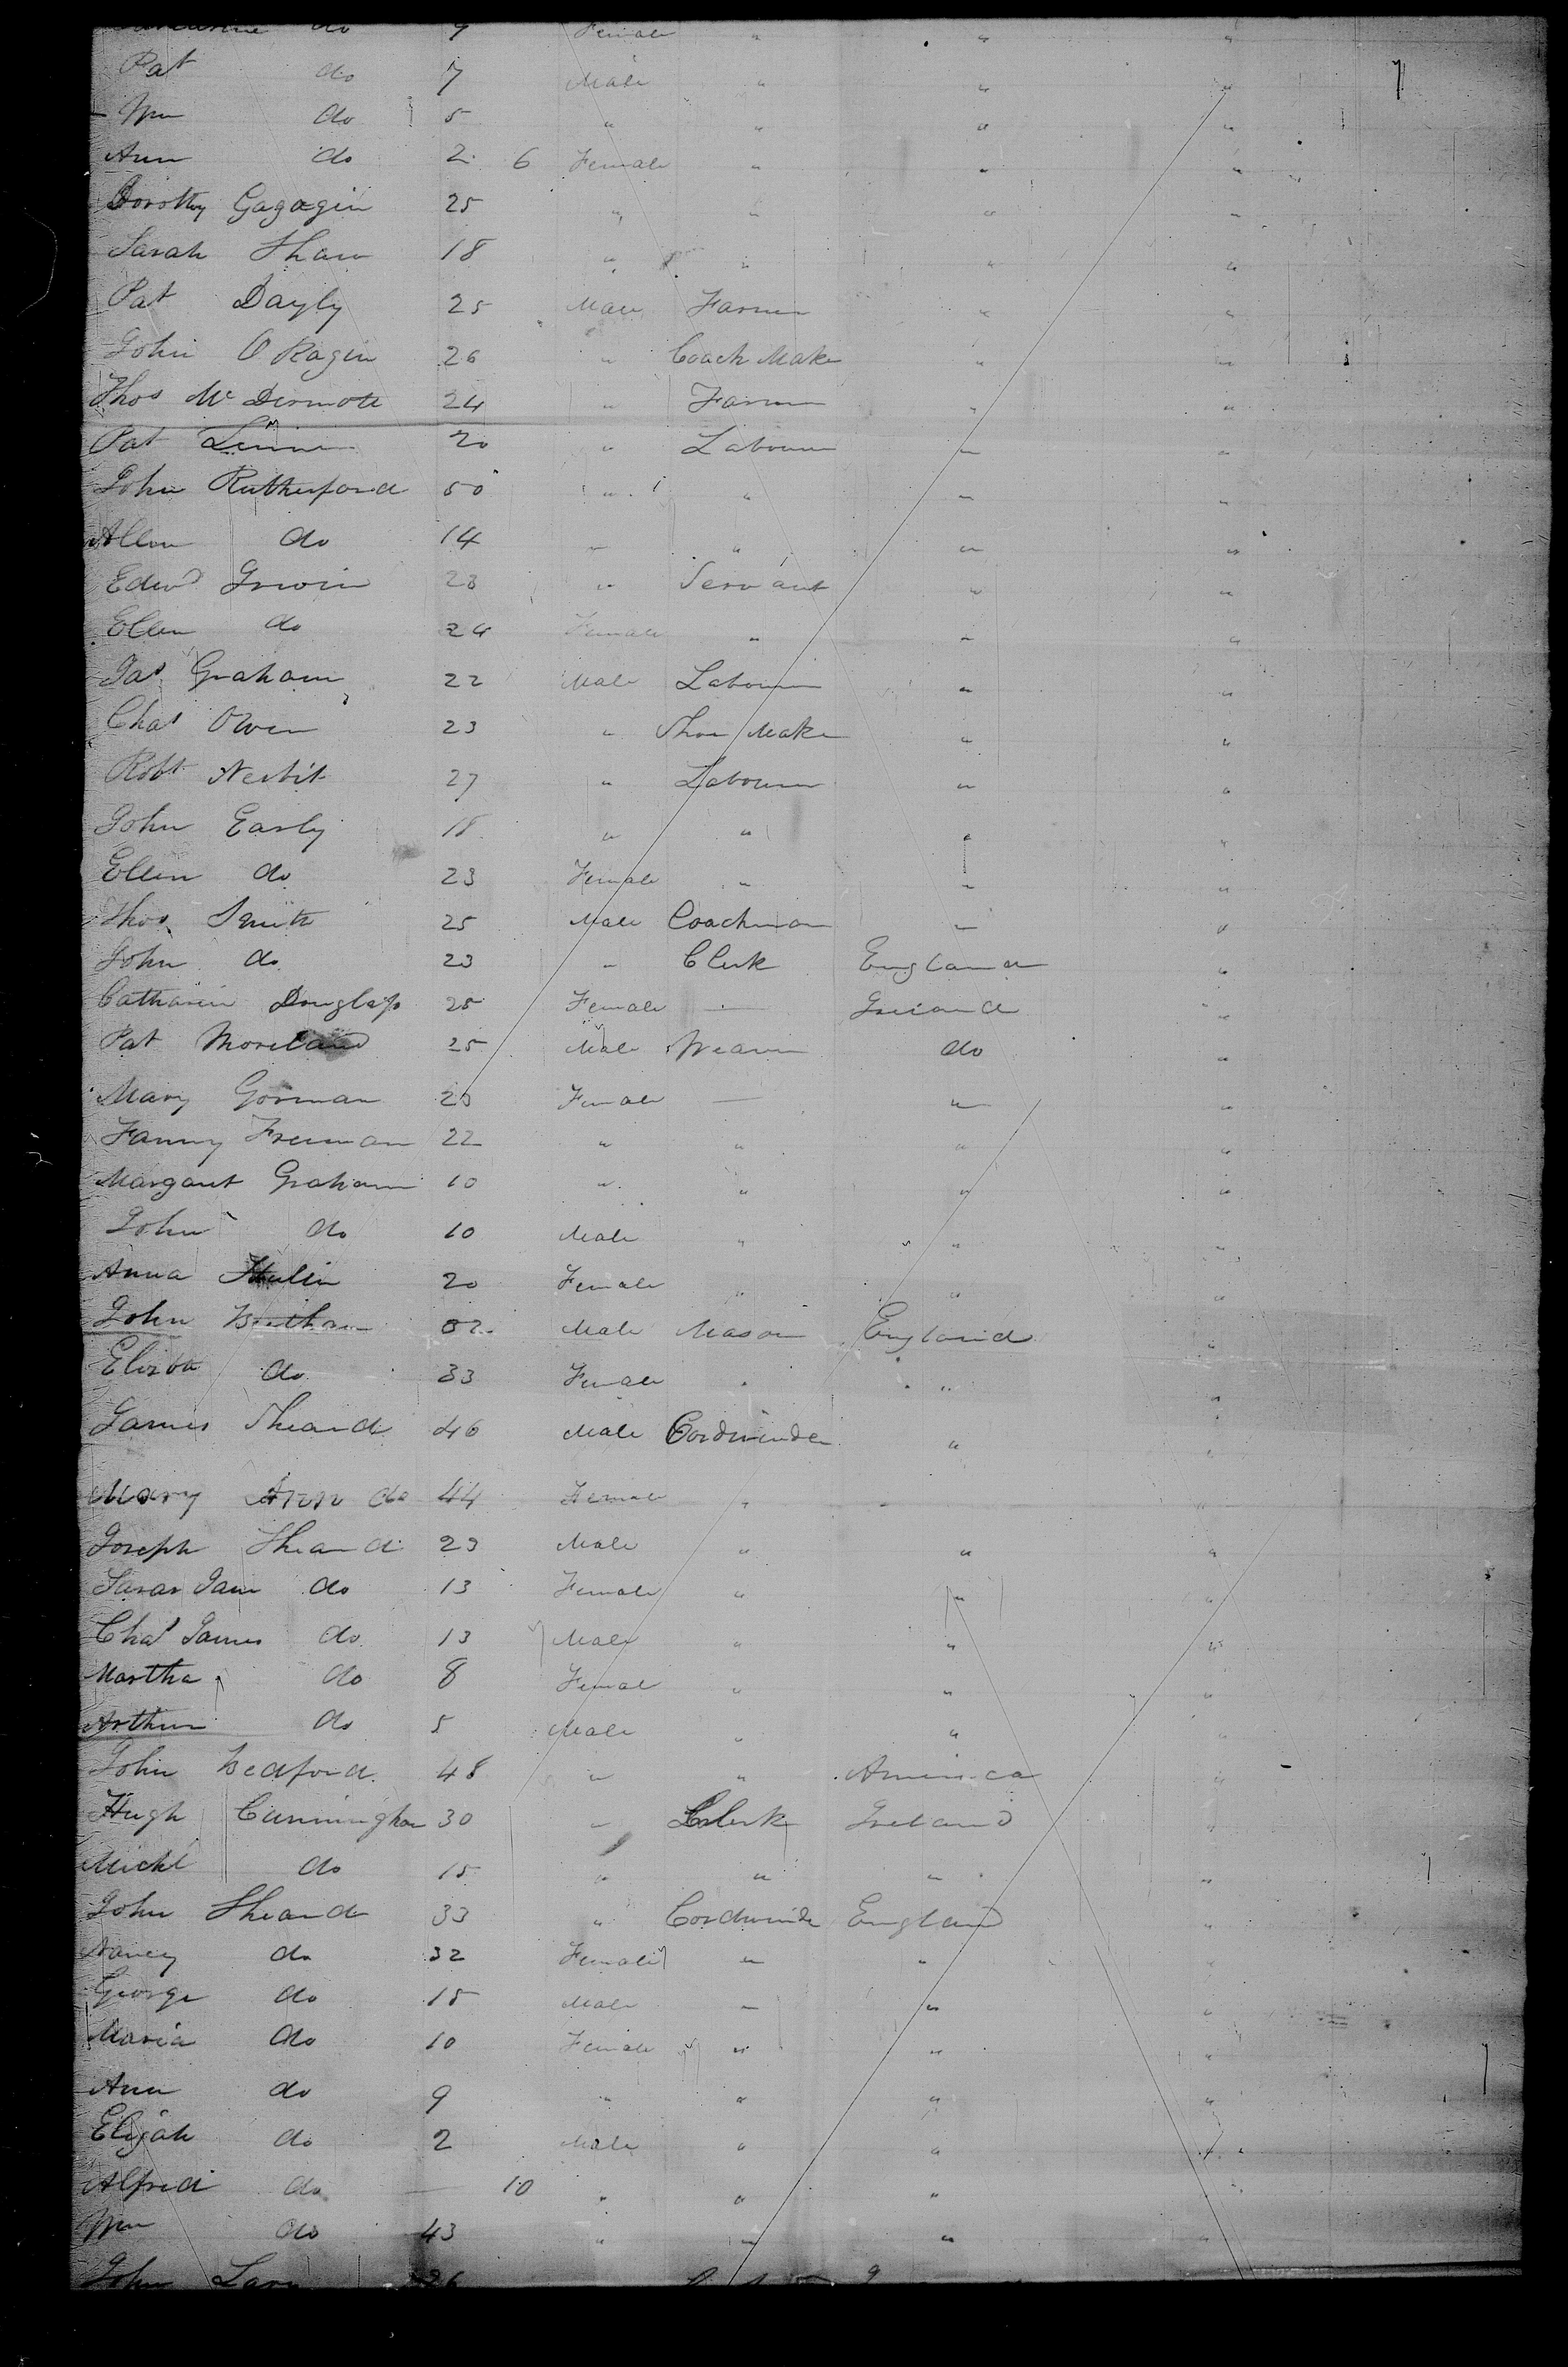 do 9 Female " " "
Pat do 7 Male " " "
Wm do 5 " " " "
Ann do 2 6 Female " " "
Dorothy Gagagin 25 " " " "
Sarah Shaw 18 " " " "
Pat Dayly 25 Male Farmer " "
John O Ragin 26 " Coach Maker " "
Thos McDermott 24 " Farmer " "
Pat 20 " Labourer " "
John Rutherford 50 " " " "
Allen do 14 " " " "
Edwd Irwin 28 " Servant " "
Ellen do 24 Female " " "
Jas Graham 22 Male Labourer " "
Chas Owen 23 " Shoe Maker " "
Robt Nesbit 27 " Labourer " "
John Early 18 " " " "
Ellen do 23 Female " " "
Thos Smith 25 Male Coachman " "
John do 23 " Clerk England "
Catharin Douglass 25 Female — Ireland "
Pat Moreland 25 Male Weaver do "
Mary Gorman 23 Female — " "
Fanny Freeman 22 " " " "
Margaret Graham 10 " " " "
John do 10 Male " " "
Anna 20 Female " " "
John 52 Male Mason England "
Elizbth do 33 Female " " "
James Sheard 46 Male Cordwinder " "
Mary Ann do 44 Female " " "
Joseph Sheard 23 Male " " "
Sarar Jane do 13 Female " " "
Chas James do 13 Male " " "
Martha do 8 Female " " "
Arthur do 5 Male " " "
John Bedford 48 " " America "
Hugh Cunningham 30 " Clerk Ireland "
Michl do 15 " " " "
John Sheard 33 " Cordwinder England "
Nancy do 32 Female " " "
George do 15 Male " " "
Maria do 10 Female " " "
Ann do 9 " " " "
Elijah do 2 Male " " "
Alfred do — 10 " " "
Wm do 43 " " " "
John 26